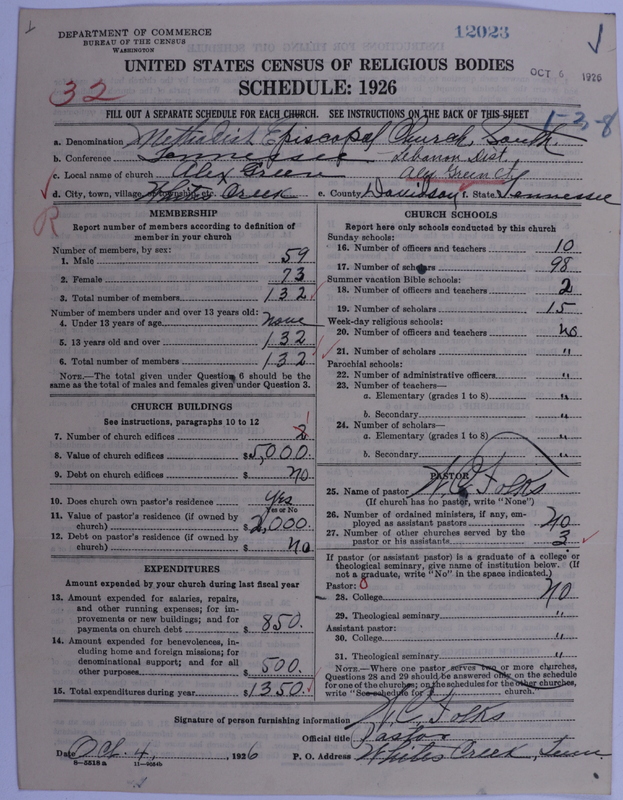 DEPARTMENT OF COMMERCE
BUREAU OF THE CENSUS
WASHINGTON
12023
OCT 6 1926
UNITED STATES CENSUS OF RELIGIOUS BODIES
SCHEDULE: 1926
32
FILL OUT A SEPARATE SCHEDULE FOR EACH CHURCH. SEE INSTRUCTIONS ON THE BACK OF THIS SHEET
1-2,-8
a. Denomination Methodist Episcopal Church, South.
b. Conference Tennessee Lebanon Dist.
c. Local name of church Alex Green Alex Green Ch
d. City, town, village, Whites Creek e. County Davidson f. State Tennessee
R
MEMBERSHIP
Report number of members according to definition of
member in your church
Number of members, by sex:
1. Male 59
2. Female 73
3. Total number of members 132
Number of members under and over 13 years old:
4. Under 13 years of age none
5. 13 years old and over 132
6. Total number of members 132
NOTE.—The total given under Question 6 should be
same as the total of males and females given under Question 3.
CHURCH BUILDINGS
See instructions, paragraphs 10 to 12
7. Number of church edifices 2 1
8. Value of church edifices $5,000.
9. Debt on church edifices $ no
10. Does church own pastor's residence Yes
Yes or No
11. Value of pastor's residence (if owned by
church) $2,000.
12. Debt on pastor's residence (if owned by
church) $ no
EXPENDITURES
Amount expended by your church during last fiscal year
13. Amount expended for salaries, repairs,
and other running expenses; for im-
provements or new buildings; and for
payments on church debt $ 850.
14. Amount expended for benevolences, in-
cluding home and foreign missions; for
denominational support; and for all
other purposes $ 500.
15. Total expenditures during year $ 1350.
CHURCH SCHOOLS
Report here only schools conducted by this church
Sunday schools:
16. Number of officers and teachers 10
17. Number of scholars 98
Summer vacation Bible schools:
18. Number of officers and teachers 2
19. Number of scholars 15
Week-day religious schools:
20. Number of officers and teachers no
21. Number of scholars "
Parochial schools:
22. Number of administrative officers "
23. Number of teachers—
a. Elementary (grades 1 to 8) "
b. Secondary "
24. Number of scholars—
a. Elementary (grades 1 to 8) "
b. Secondary "
PASTOR
25. Name of pastor W.C. Folks
(If church has no pastor, write "None")
26. Number of ordained ministers, if any, em-
ployed as assistant pastors no
27. Number of other churches served by the
pastor or his assistants 3
If pastor (or assistant pastor) is a graduate of a college or
theological seminary, give name of institution below. (If
not a graduate, write "No" in the space indicated.)
Pastor: 0
28. College no
29. Theological seminary "
Assistant pastor:
30. College "
31. Theological seminary "
NOTE.—Where one pastor serves two or more churches,
Questions 28 and 29 should be answered only on the schedule
for one of the churches; on the schedules for the other churches,
write "See schedule for church.
Signature of person furnishing information W.C. Folks
Official title Pastor
Date Oct. 4, 1926 P. O. Address Whites Creek, Tenn
8—5518 a 11—9054b